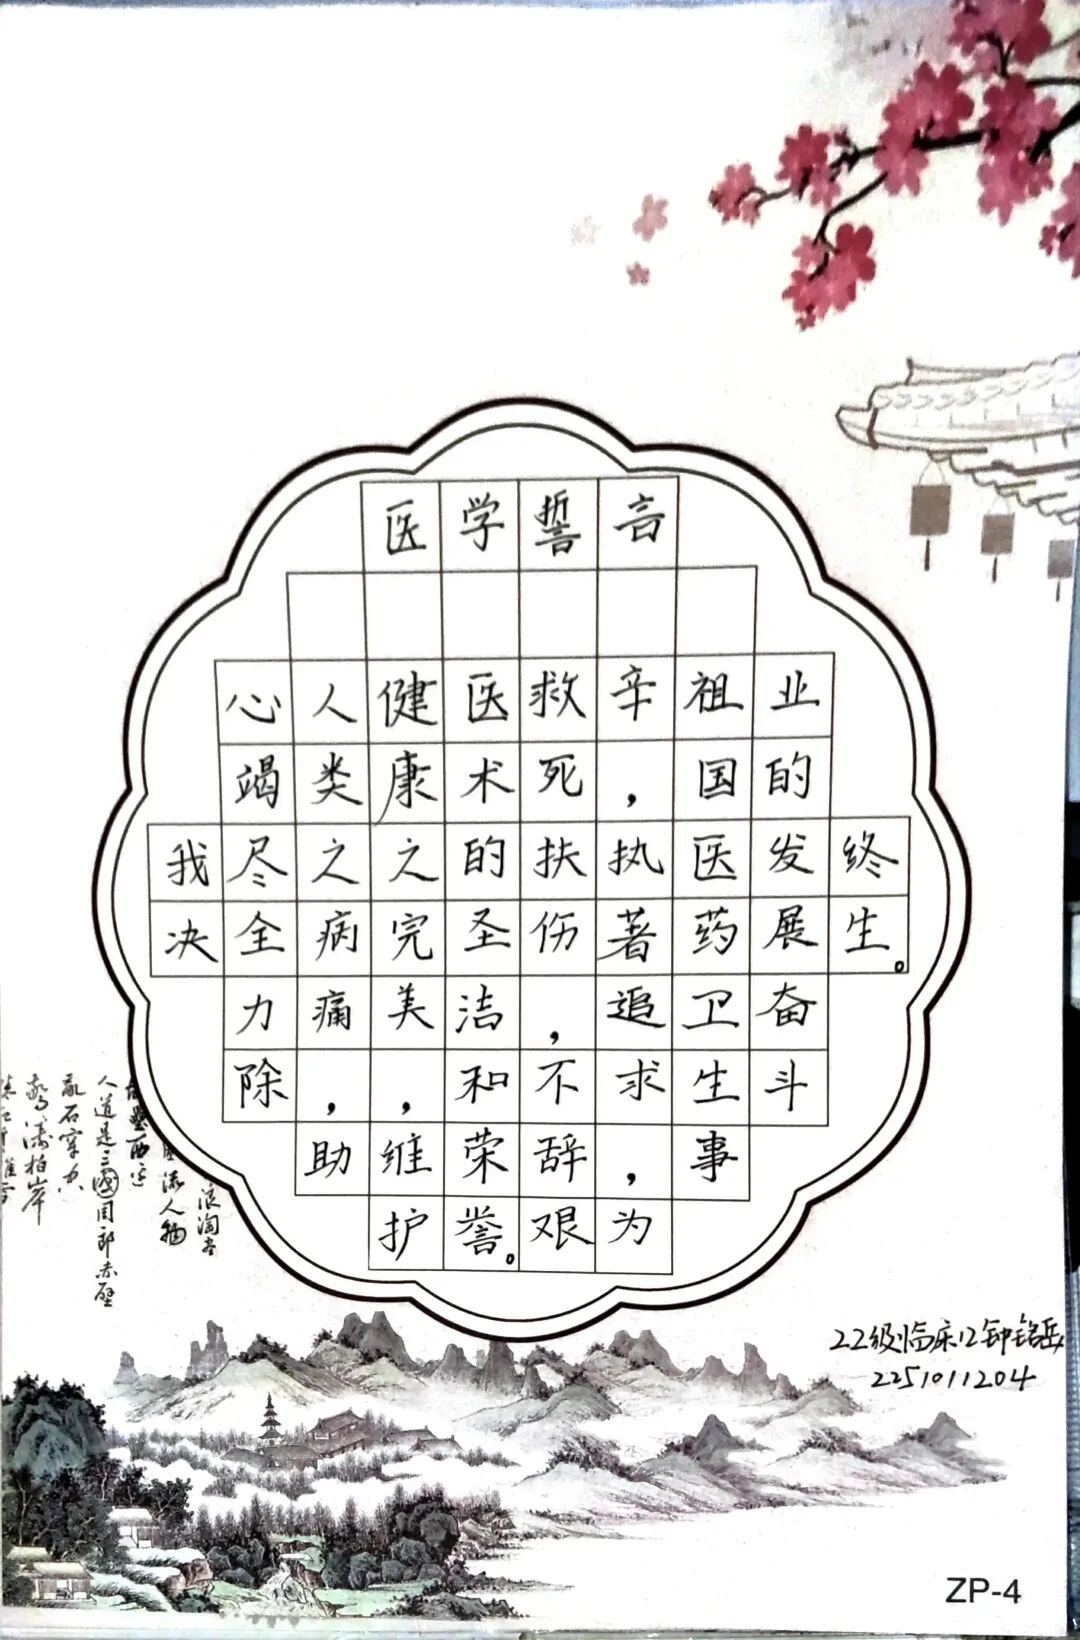 医学誓言
我决
心竭尽全力除
人类之病痛，助
健康之完美，维护
医术的圣洁和荣誉。
救死扶伤，不辞艰
辛，执著追求，为
祖国医药卫生事
业的发展奋斗
终生。
浪淘尽
流人物
垒西边
人道是三國周郎赤壁
乱石穿空
惊涛拍岸
22级临床12钟铭岳
2251011204
ZP-4